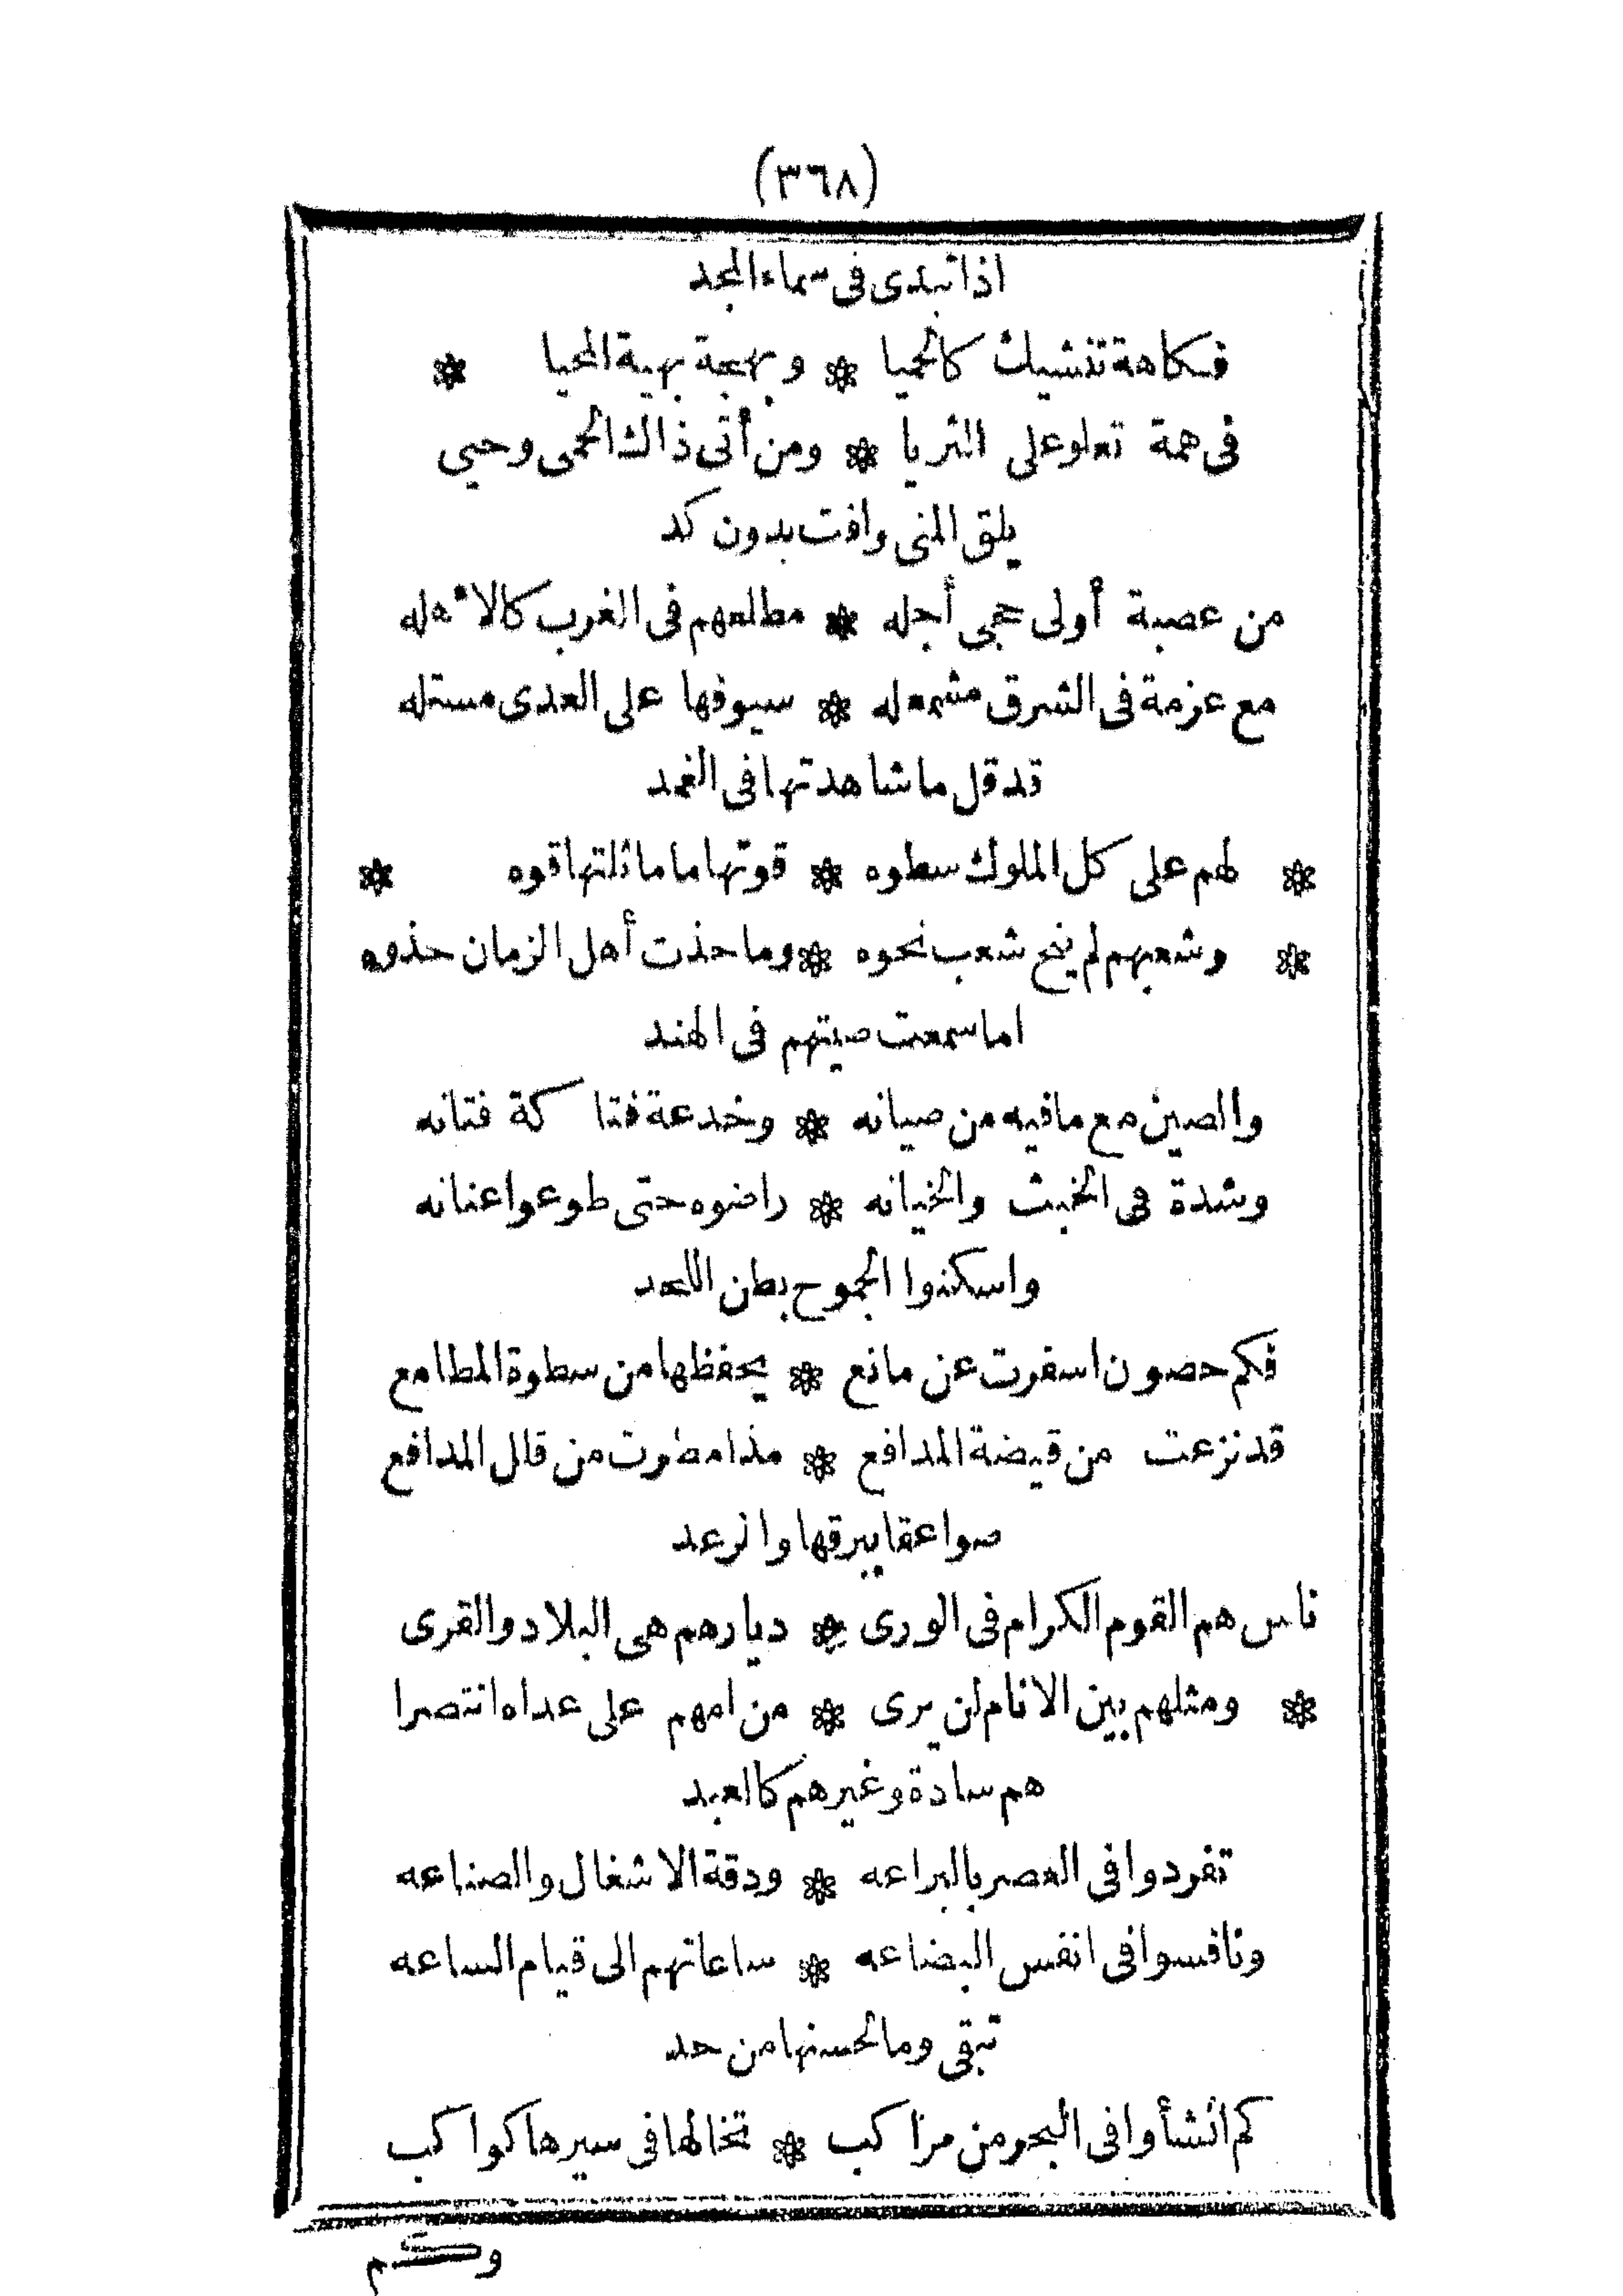 (٣٦٨)
اذا تبدى فى سماء المجد
فكاهة تنشيك كالحميا * وبهجة بهية المحيا *
فى همة تعلو على الثريا * ومن أتى ذاك الحمى وحيى
يلق المنى وافت بدون كد
من عصبة أولى حجى أجله * مطلعهم فى الغرب كالاهله
مع عزمة فى الشرق مشمعله * سيوفها على العدى مستله
قد قل ما شاهدتها فى الغمد
* لهم على كل الملوك سطوه * قوتها ما ماثلتها قوه *
* وشعبهم لم ينح شعب نحوه * وما حذت أهل الزمان حذوه
اما سمعت صيتهم فى الهند
والصين مع مافيه من صيانه * وخدعة فتاكة فتانه
وشدة فى الخبث والخيانه * راضوه حتى طوعوا عنانه
واسكنوا الجموح بطن اللحد
فكم حصون اسفرت عن مانع * يحفظها من سطوة المطامع
قد نزعت من قبضة المدافع * مذ امطرت من قلل المدافع
صواعقا ببرقها والرعد
ناس هم القوم الكرام فى الورى * ديارهم هى البلاد والقرى
* ومثلهم بين الانام لن يرى * من امهم على عداه انتصرا
هم سادة وغيرهم كالعبد
تفردوا فى العصر بالبراعه * ودقة الاشغال والصناعه
ونافسوا فى انفس البضاعه * ساعاتهم الى قيام الساعه
تبقى وما لحسنها من حد
كم انشأوا فى البحر من مراكب * تخالها فى سيرها كواكب
وكم